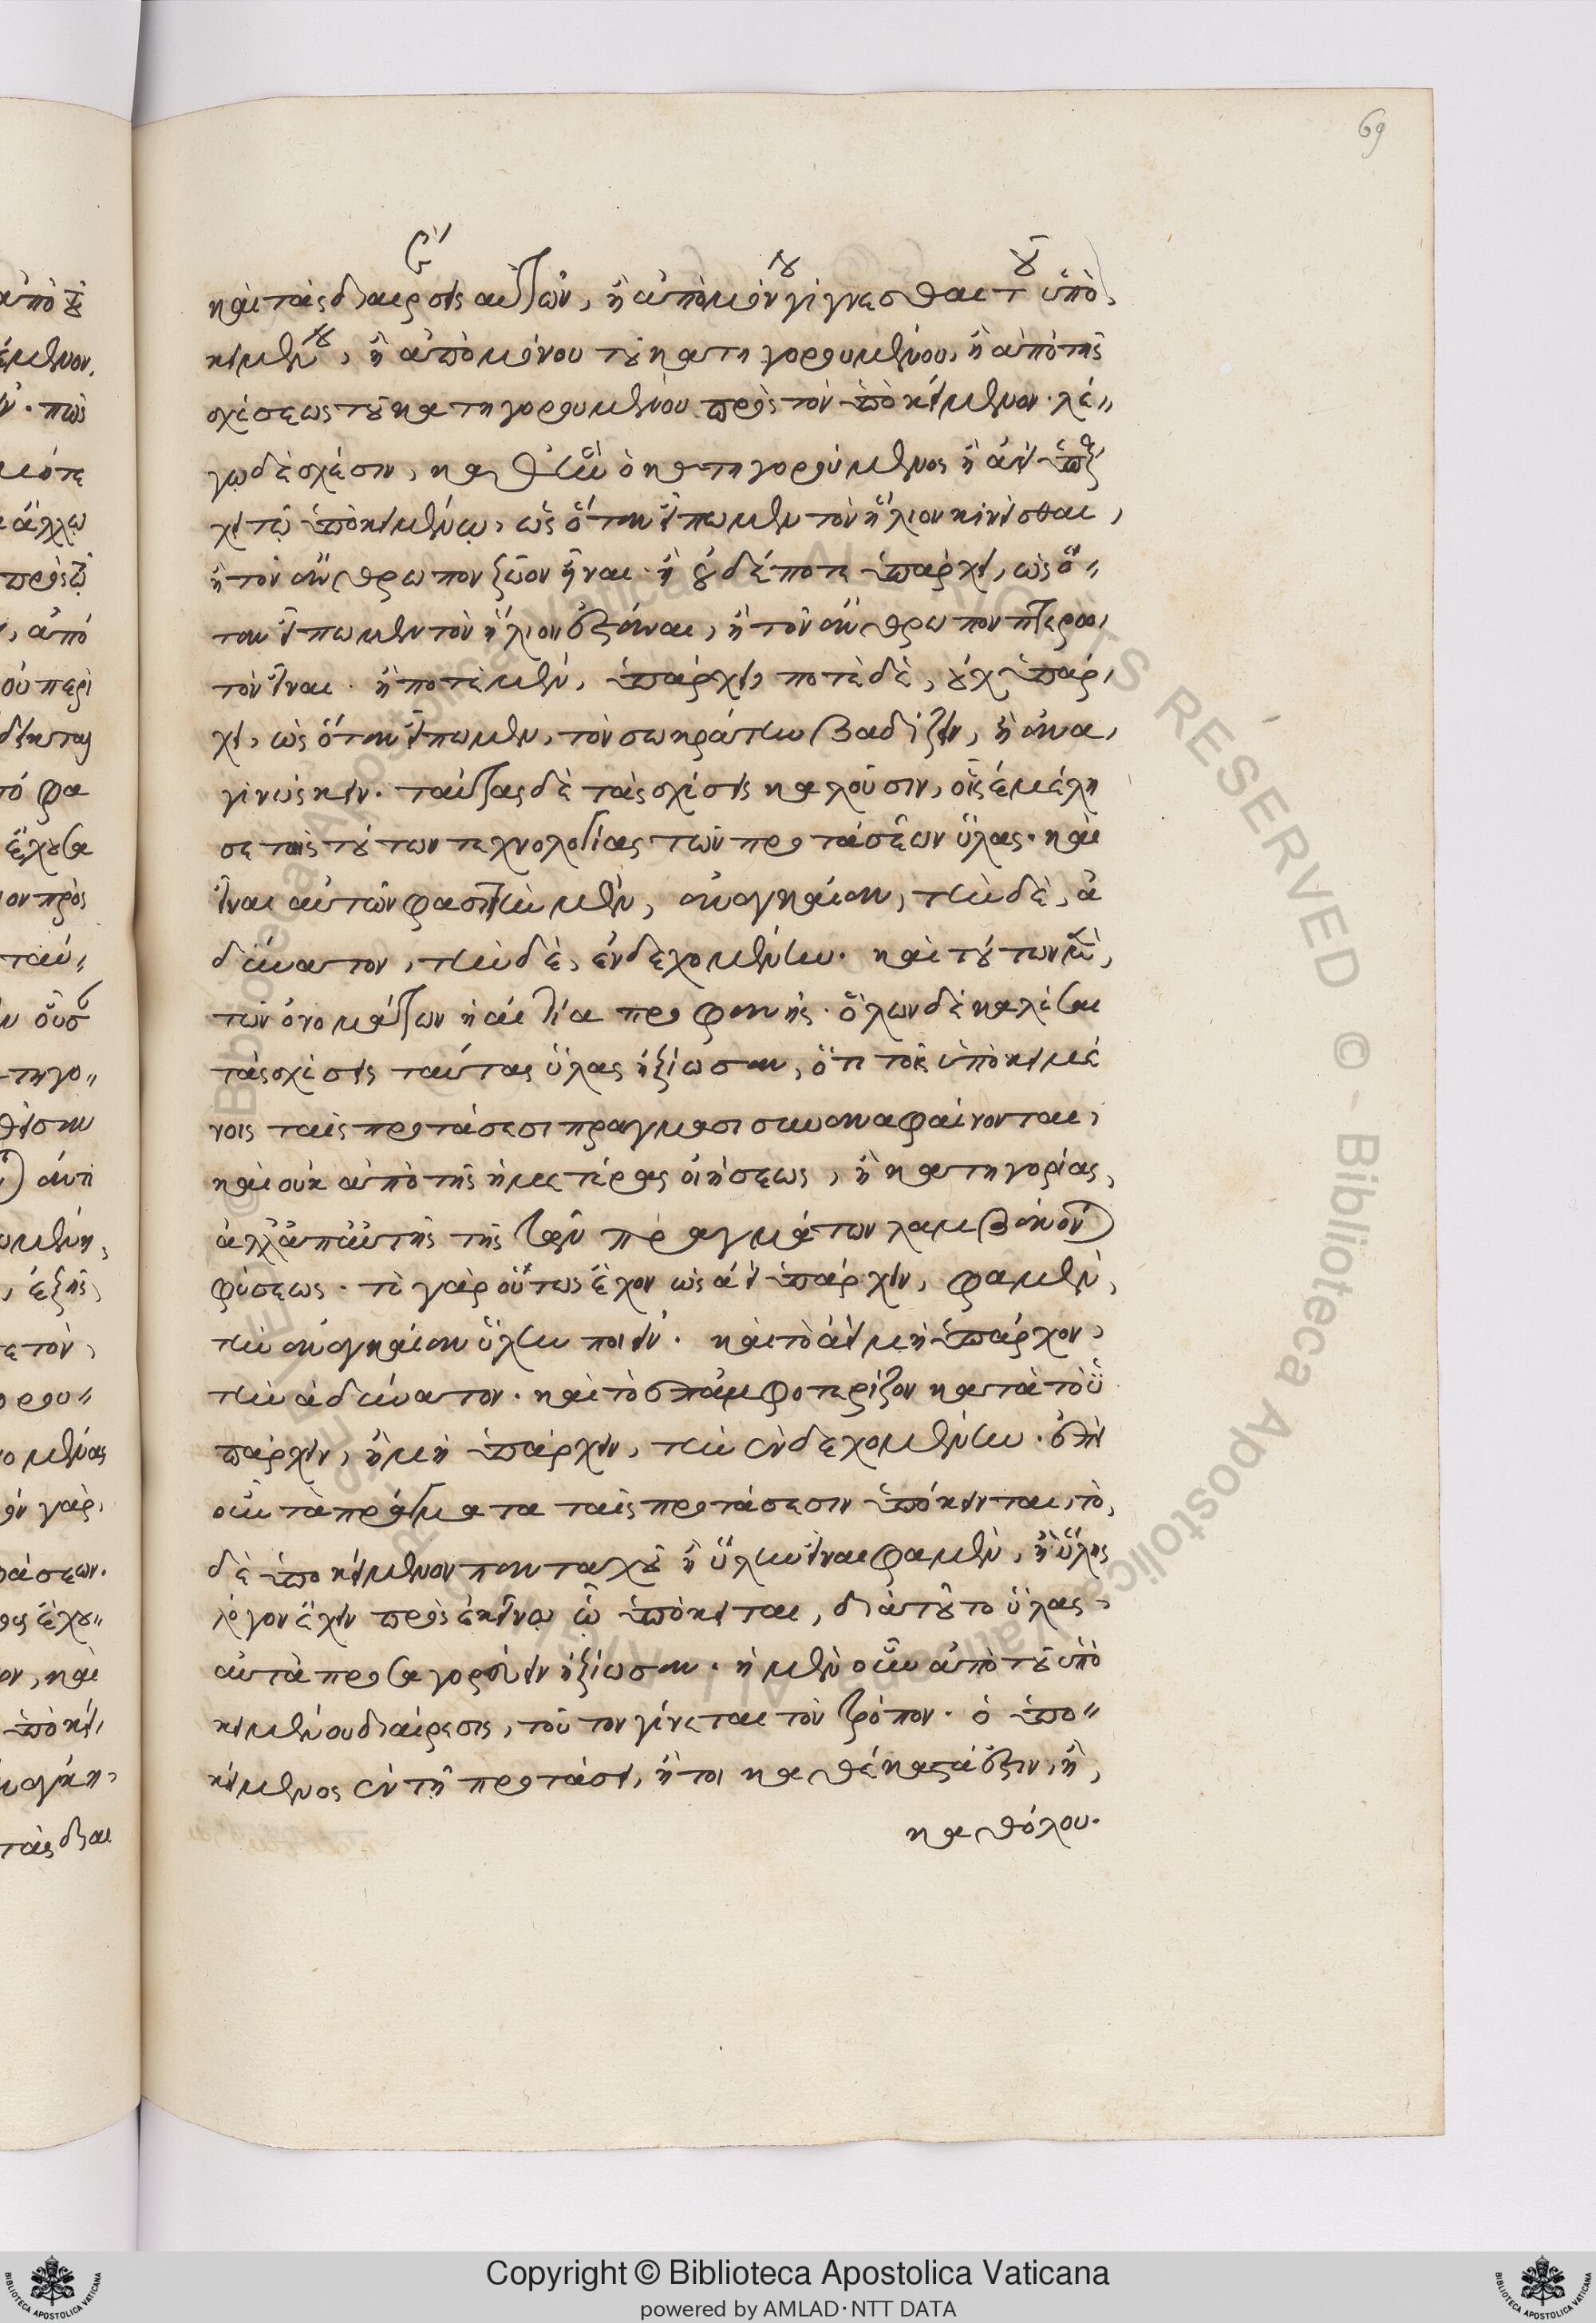 69
καὶ τὰς διαιρέσεις αὐτῶν, ἢ ἀπὸ μόνου γίγνεσθαι τοῦ ὑπο
κειμένου, ἢ ἀπὸ μόνου τοῦ κατηγορουμένου, ἢ ἀπὸ τῆς
σχέσεως τοῦ κατηγορουμένου πρὸς τὸν ὑποκείμενον. λέ
γω δὲ σχέσιν, καθ' ἣν ὁ κατηγορούμενος ἢ ἀεὶ ὑπάρ
χει τῷ ὑποκειμένῳ, ὡς ὅταν εἴπωμεν τὸν ἥλιον κινεῖσθαι,
ἢ τὸν ἄνθρωπον ζῶον εἶναι. ἢ οὐδέποτε ὑπάρχει, ὡς ὅ
ταν εἴπωμεν τὸν ἥλιον ἑστάναι, ἢ τὸν ἄνθρωπον πτερω
τὸν εἶναι. ἢ ποτὲ μὲν, ὑπάρχει, ποτὲ δὲ, οὐχ ὑπάρ
χει, ὡς ὅταν εἴπωμεν, τὸν σωκράτην βαδίζειν, ἢ ἀνα
γινώσκειν. ταύτας δὲ τὰς σχέσεις καλοῦσιν, οἷς ἐμέλη
σε τῆς τούτων τεχνολογίας τῶν προτάσεων ὕλας. καὶ
εἶναι αὐτῶν φασι τὴν μὲν, ἀναγκαίαν, τὴν δὲ, ἀ
δύνατον, τὴν δὲ, ἐνδεχομένην. καὶ τούτων μὲν
τῶν ὀνομάτων ἡ αἰτία προφανής. ὅλων δὲ καλέσαι
τὰς σχέσεις ταύτας ὕλας ἠξίωσαν, ὅτι τοῖς ὑποκειμέ
νοις ταῖς προτάσεσι πράγμασι συναναφαίνονται,
καὶ οὐκ ἀπὸ τῆς ἡμετέρας οἰήσεως, ἢ κατηγορίας,
ἀλλ' ἀπ' αὐτῆς τῆς τῶν πραγμάτων λαμβάνονται
φύσεως. τὸ γὰρ οὕτως ἔχον ὡς ἀεὶ ὑπάρχειν, φαμὲν,
τὴν ἀναγκαίαν ὕλην ποιεῖν. καὶ τὸ ἀεὶ μὴ ὑπάρχον,
τὴν ἀδύνατον. καὶ τὸ ἐπαμφοτερίζον κατὰ τὸ ὑ
πάρχειν, ἢ μὴ ὑπάρχειν, τὴν ἐνδεχομένην. ἐπεὶ
οὖν τὰ πράγματα ταῖς προτάσεσιν ὑπόκεινται, τὸ
δὲ ὑποκείμενον πανταχοῦ ἢ ὕλην εἶναι φαμὲν, ἢ ὕλης
λόγον ἔχειν πρὸς ἐκεῖνο ᾧ ὑπόκειται, διὰ τοῦτο ὕλας
αὐτὰ προσαγορεύειν ἠξίωσαν. ἡ μὲν οὖν ἀπὸ τοῦ ὑπο
κειμένου διαίρεσις, τοῦτον γίνεται τὸν τρόπον. ὁ ὑπο
κείμενος ἐν τῇ προτάσει, ἤτοι καθέκαστά ἐστιν, ἢ
καθόλου.
Copyright © Biblioteca Apostolica Vaticana
powered by AMLAD·NTT DATA